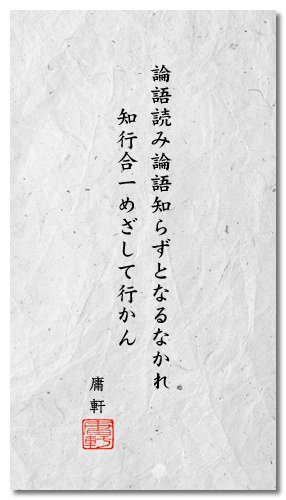 論語読み論語知らずとなるなかれ
知行合一めざして行かん
庸軒